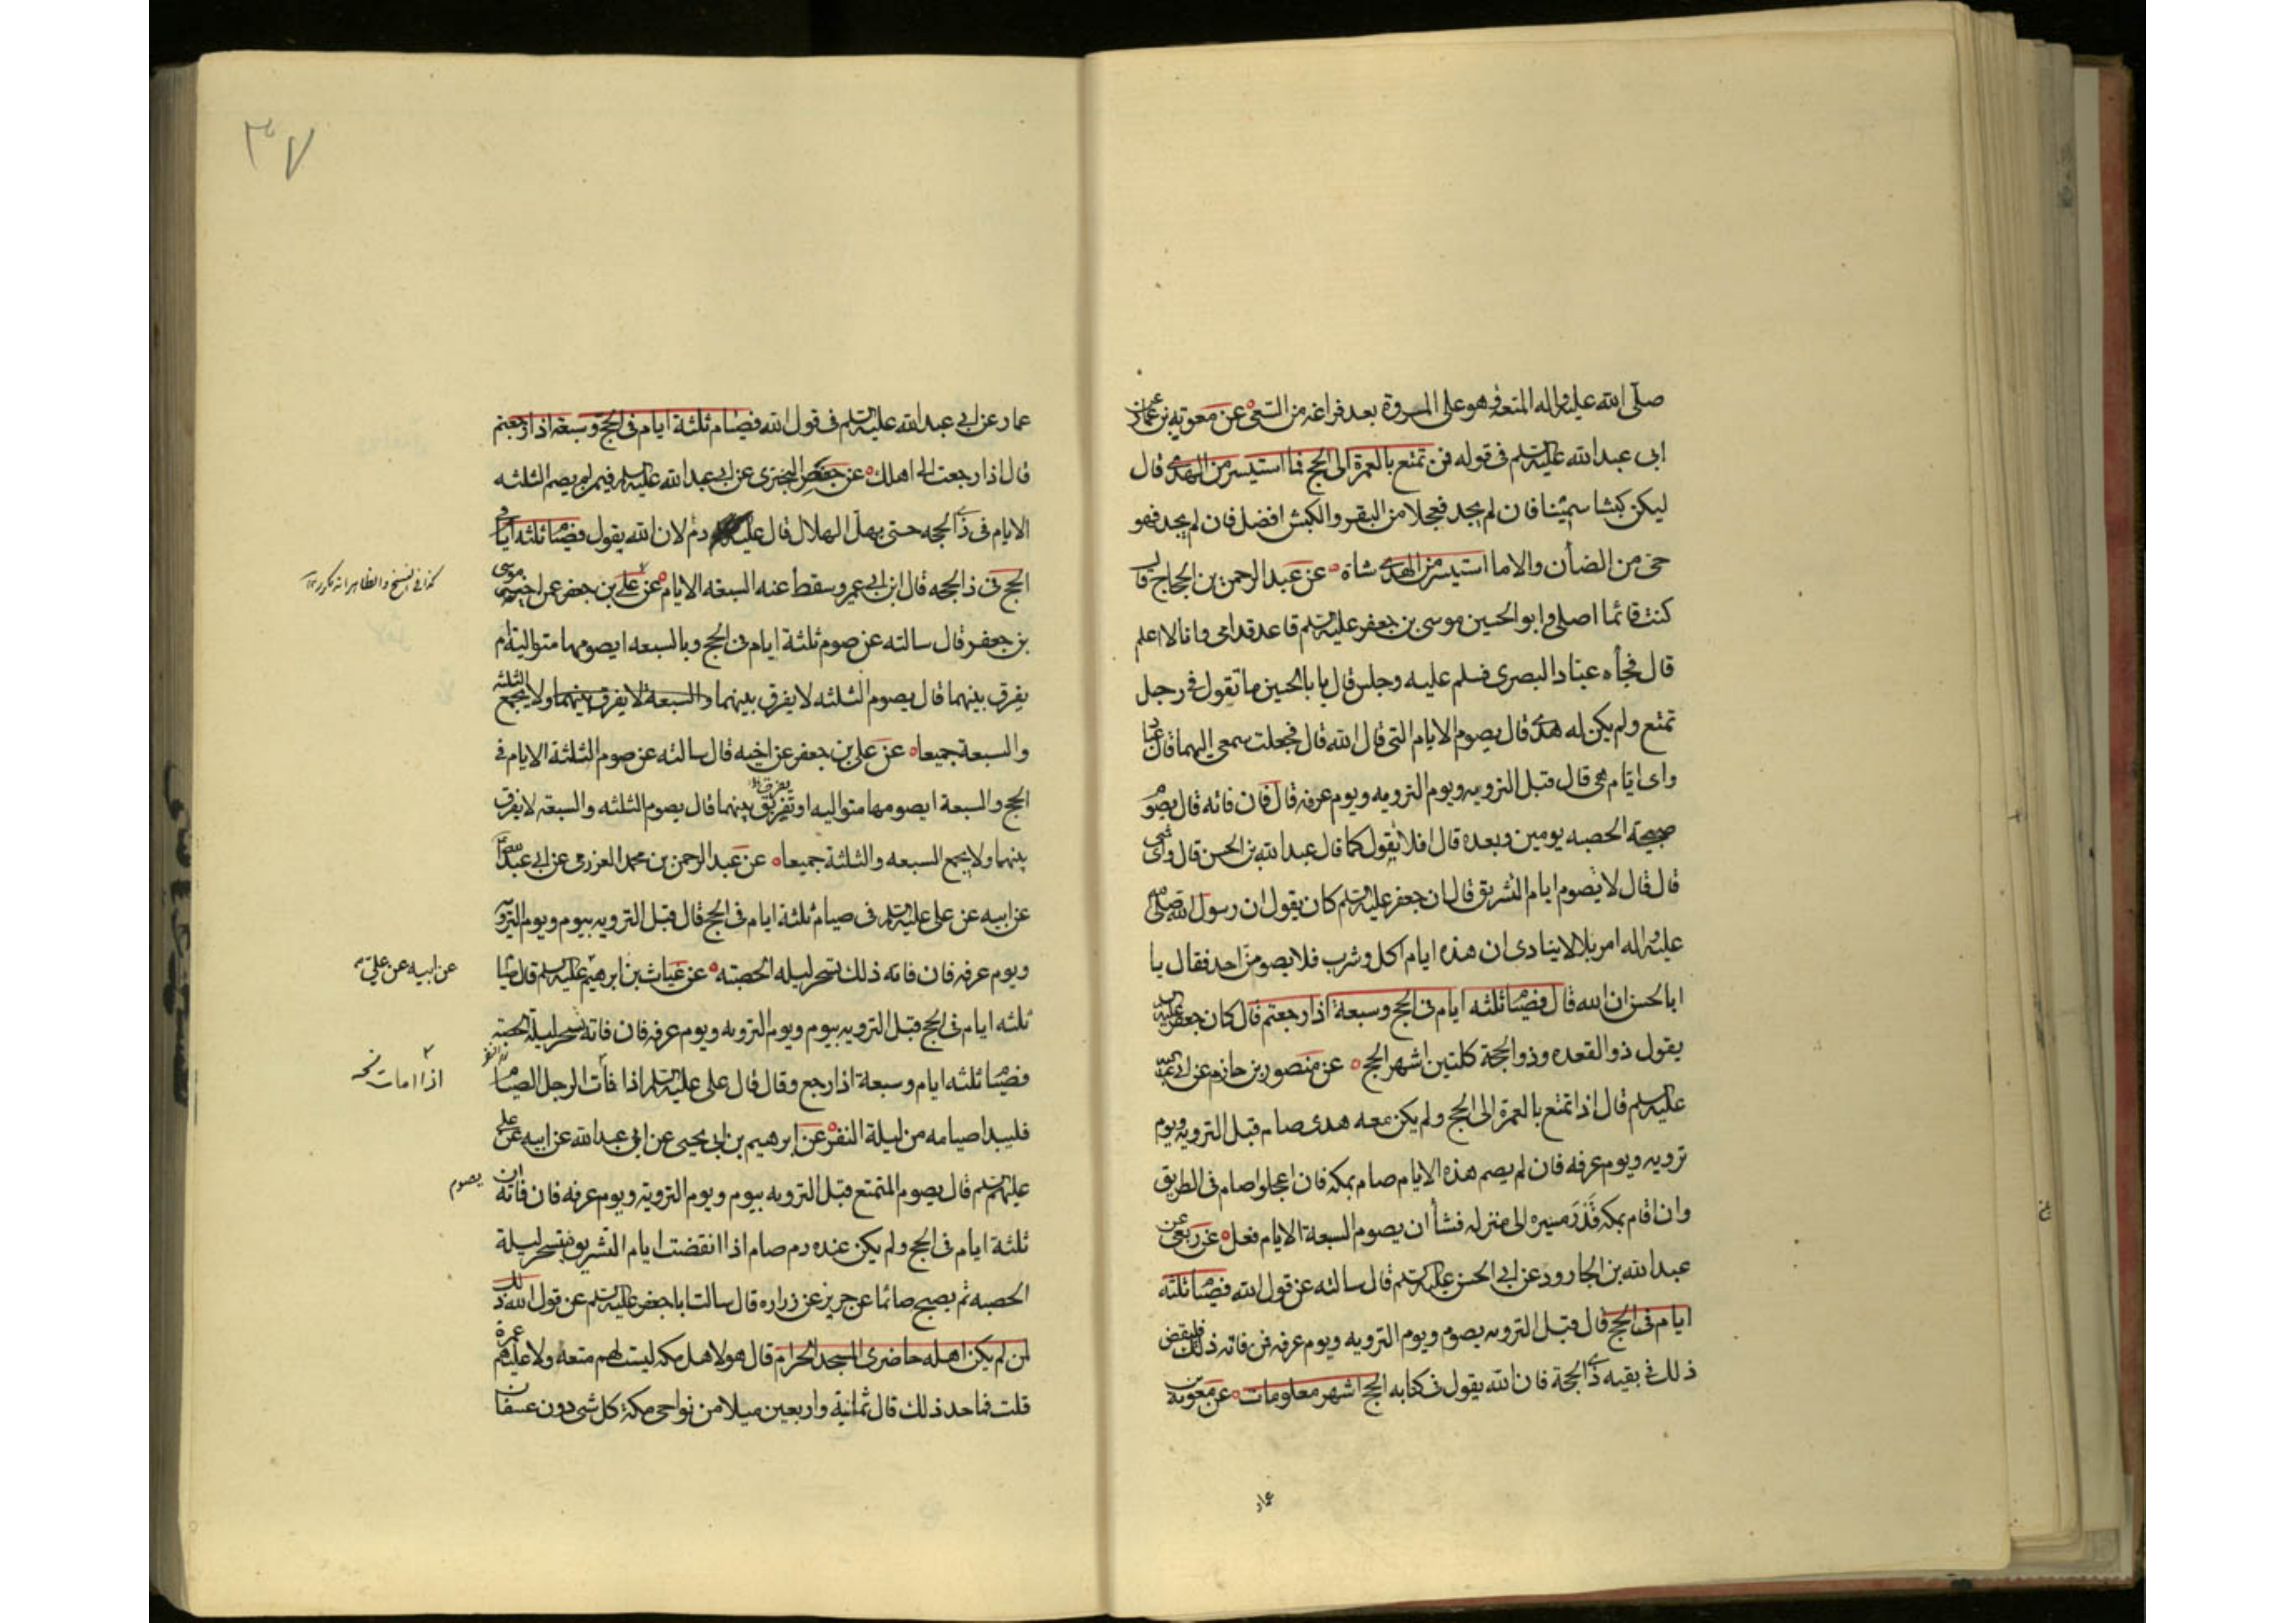 صلى الله عليه واله المتعه وهو على المروة بعد فراغه من السعى عن معوية بن عمار عن
ابى عبد الله عليه السلم فى قوله فمن تمتع بالعمرة الى الحج فما استيسر من الهدى قال
ليكن كبشا سمينا فان لم يجد فعجلا من البقر والكبش افضل فان لم يجد فهو
من الضأن والا ما استيسر من الهدى شاة عن عبد الرحمن بن الحجاج قال
كنت قائما اصلى وابو الحسين موسى بن جعفر عليه السلم قاعد قدامى وانا لا اعلم
قال فجأه عباد البصرى فسلم عليه وجلس قال يا با الحسين ما تقول فى رجل
تمتع ولم يكن له هدى قال يصوم الايام التى قال الله قال فجعلت سمعى اليهما قال عباد
واى ايام هى قال قبل الترويه ويوم الترويه ويوم عرفه قال فان فاته قال يصوم
صبيحة الحصبه يومين وبعده قال افلا تقول كما قال عبد الله بن الحسن قال واى شى
قال قال لا يصوم ايام التشريق قال ان جعفر عليه السلم كان يقول ان رسول الله صلى
عليه واله امر بلالا ينادى ان هذه ايام اكل وشرب فلا يصومن احد فقال يا
ابا الحسن ان الله قال فصيام ثلثه ايام فى الحج وسبعة اذا رجعتم قال كان جعفر عليه
يقول ذو القعده وذو الحجة كلتين اشهر الحج عن منصور بن حازم عن ابى عبد الله
عليه السلم قال اذا تمتع بالعمرة الى الحج ولم يكن معه هدى صام قبل الترويه ويوم
ترويه ويوم عرفه فان لم يصم هذه الايام صام بمكه فان اعجلوا صام فى الطريق
وان اقام بمكه قدر مسيره الى منزله فشأ ان يصوم السبعة الايام فعل عن ربعى عن
عبد الله بن الجارود عن ابى الحسن عليه السلم قال سالته عن قول الله فصيام ثلثه
ايام فى الحج قال قبل الترويه يصوم ويوم الترويه ويوم عرفه فمن فاته ذلك فليقض
ذلك فى بقيه ذى الحجة فان الله يقول فى كتابه الحج اشهر معلومات عن معوية بن
عمار
٣٧
عمار عن ابى عبد الله عليه السلم فى قول الله فصيام ثلثة ايام فى الحج وسبعة اذا رجعتم
قال اذا رجعت الى اهلك عن حفص البخترى عن ابى عبد الله عليه السلم فيمن لم يصم الثلثه
الايام فى ذى الحجه حتى يهل الهلال قال عليه دم لان الله يقول فصيام ثلثه ايام فى
الحج فى ذا الحجه قال ابن ابى عمير وسقط عنه السبعه الايام عن على بن جعفر عن اخيه موسى
بن جعفر قال سالته عن صوم ثلثة ايام فى الحج وبالسبعه ايصومها متوالية ام
يفرق بينهما قال يصوم الثلثه لا يفرق بينهما والسبعة لا يفرق بينهما ولا يجمع الثلثه
والسبعة جميعا عن على بن جعفر عن اخيه قال سالته عن صوم الثلثة الايام فى
الحج والسبعة ايصومها متواليه او تفريق يفرق بينهما قال يصوم الثلثه والسبعه لا يفرق
بينهما ولا يجمع السبعه والثلثة جميعا عن عبد الرحمن بن محمد العزرمى عن ابى عبد الله
عن ابيه عن على عليه السلم فى صيام ثلثة ايام فى الحج قال قبل الترويه بيوم ويوم الترويه
ويوم عرفه فان فاته ذلك تسحر ليله الحصبه عن غياث بن ابرهيم عليه السلم قال صيام
ثلثه ايام فى الحج قبل الترويه بيوم ويوم الترويه ويوم عرفه فان فاته تسحر ليلة الحصبه
فصيام ثلثه ايام وسبعة اذا رجع وقال قال على عليه السلم اذا فات الرجل الصيام
فليبدا صيامه من ليلة النفر عن ابرهيم بن ابى يحيى عن ابى عبد الله عن ابيه عن على
عليهم السلم قال يصوم المتمتع قبل الترويه بيوم ويوم الترويه ويوم عرفه فان فاته ان
ثلثة ايام فى الحج ولم يكن عنده دم صام اذا انقضت ايام التشريق فيتسحر ليلة
الحصبه ثم يصبح صائما عن حريز عن زراره قال سالت ابا جعفر عليه السلم عن قول الله ذلك
لمن لم يكن اهله حاضرى المسجد الحرام قال هولا اهل مكه ليست لهم متعه ولا عليهم عمرة
قلت فما حد ذلك قال ثمانية واربعين ميلا من نواحى مكة كل شى دون عسفان
كذا فى النسخ والظاهر انه مكرر
عن ابيه عن على
اذا مات نسخه
يصوم